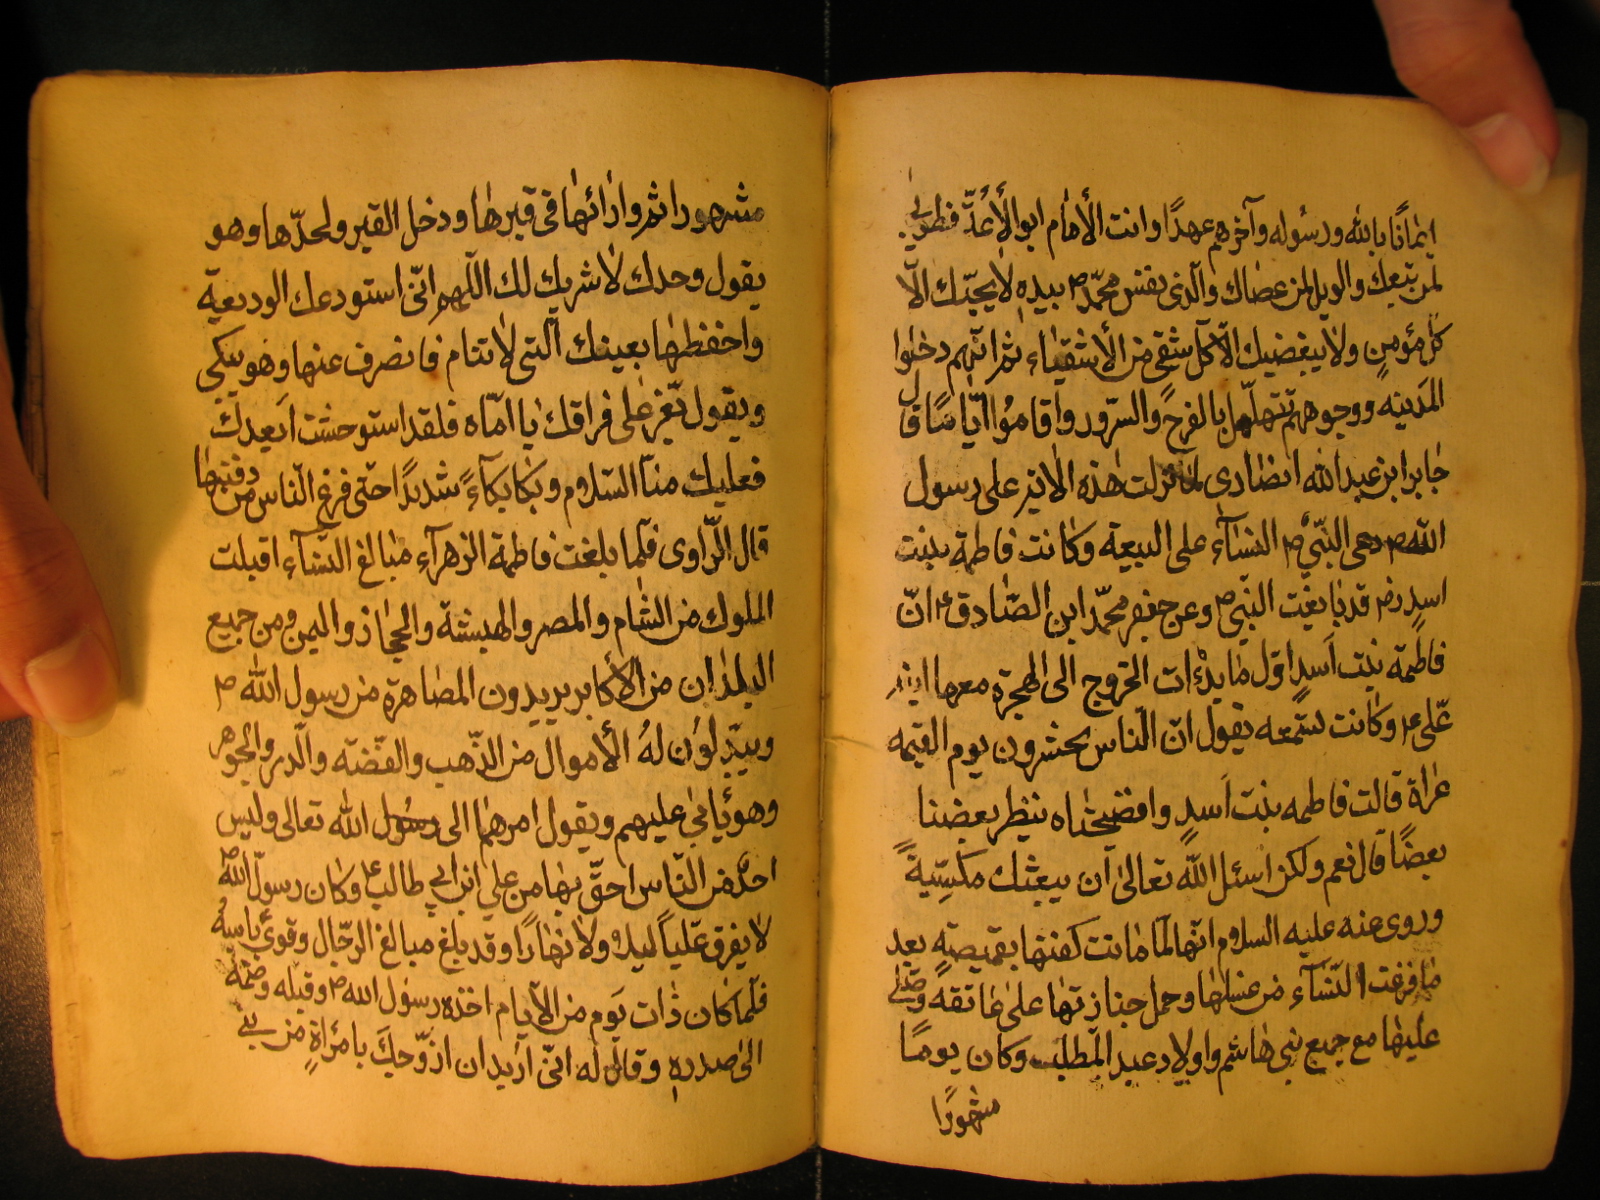 ايمانًا بالله ورسوله وآخرهم عهدًا وانت الأمام ابو الأئمّة فطوبى
لمن تبعك والويل لمن عصاك والّذى نفس محمّد ص بيده لا يحبّك الّا
كلّ مؤمن ولا يبغضك الّا كلّ شقى من الأشقياء ثم انّهم دخلوا
المدينه ووجوههم تتهلّهل بالفرح والسّرور واقاموا ايّامًا قال
جابر ابن عبد الله انصارى لمّا نزلت هذه الاية على رسول
الله ص دعى النّبىّ ص النسآء على البيعة وكانت فاطمة بنت
اسد رض قد بايعت النّبى ص وعن جعفر محمّد ابن الصّادق ع انّ
فاطمة بنت اسدٍ اوّل ما بدءات الخروج الى الهجرة معها ابنها
علّى ع وكانت تسمعه يقول انّ النّاس يحشرون يوم القيمه
عراة قالت فاطمه بنت اَسدٍ وافضيحتاه ينظر بعضنا
بعضًا قال نعم ولكن اسئل اللّه تعالى اَن يبعثك مكسيّةً
وروى عنه عليه السلام انّها لمّا ماتت كفنها بقميصه بعد
ما فرغت النّسآء من غسلها وحمل جنازتها على عاتقه وصلّى
عليها مع جميع بنى هاشم واولاد عبد المطلب وكان يومًا
مشهورًا
مشهورا ثم وارائها فى قبرها ودخل القبر ولحدّها وهو
يقول وحدك لا شريك لك اللّهم انّى استودعك الوديعة
واحفظها بعينك الّتى لا تنام فانصرف عنها وهو يبكى
ويقول تعّز على فراقك يا امّاه فلقد استوحشت اَبعدك
فعليك منّا السّلام وبكا بكآءً شديدًا حتّى فرغ النّاس من دفنها
قال الرّاوى فلّما بلغت فاطمة الزهرآء مبالغ النّسآء اقبلت
الملوك من الشام والمصر والهبشة والحجاز واليمن ومن جميع
البلدان من الأكابر يريدون المصاهرة من رسول الله ص
ويبّذلون لهُ الأموال من الذّهب والفّضّه والّدر والجوهر
وهو يأبى عليهم ويقول امرها الى رسُول الله تعالى وليس
احدٌ من النّاس احقّ بها من على ابن ابى طالب ع وكان رسول اللّه ص
لا يفرق عّليًا ليلا ولا نهارًا وقد بلغ مبالغ الرّجال وقوىَ بأسهُ
فلّما كان ذات يَوم من الأيام اخذه رسول الله ص وقبّله وضمّهُ
الى صدره وقال له انّى اريد ان ازوّجك بامرأةٍ من بنى